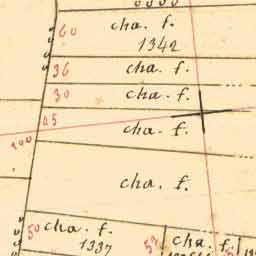 60 cha. f.
1342
36 cha. f.
30 cha. f.
45
cha. f.
100
cha. f.
50 cha. f.
1337
cha. f.